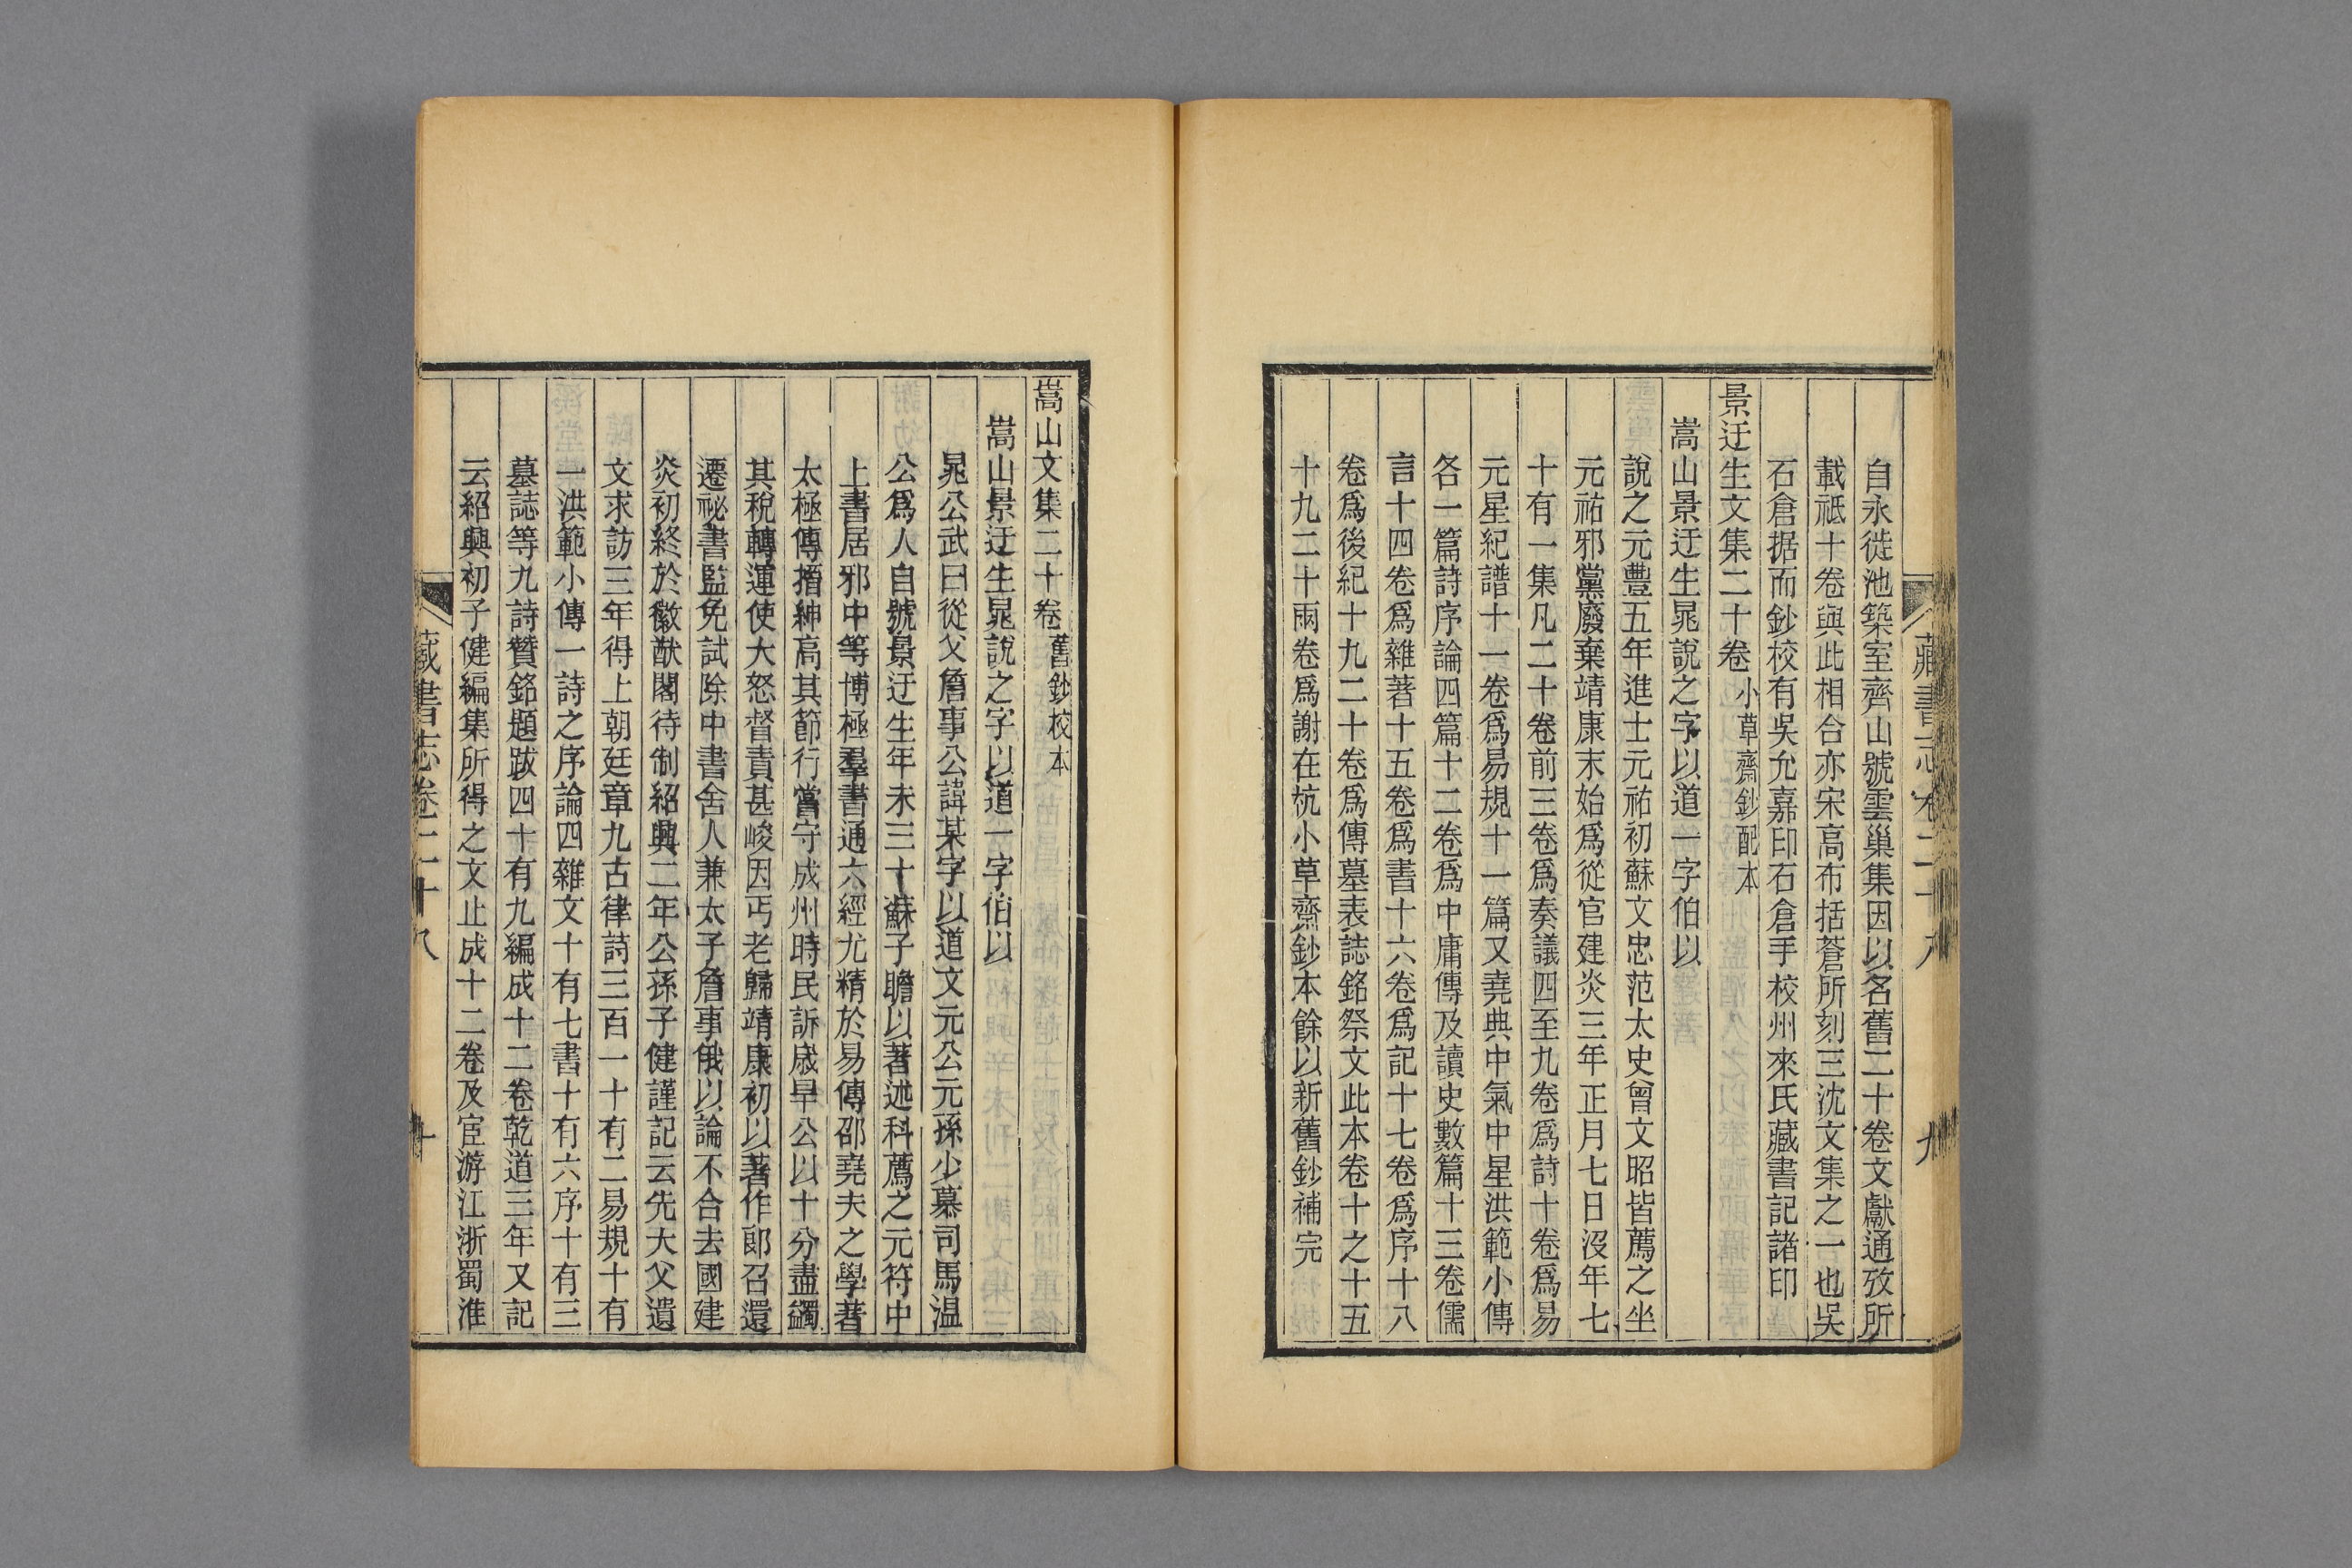 藏書志卷二十八
九
自永徙池築室齊山號雲巢集因以名舊二十卷文獻通攷所
載祗十卷與此相合亦宋高布括蒼所刻三沈文集之一也吳
石倉据而鈔校有吳允嘉印石倉手校州來氏藏書記諸印
景迂生文集二十卷 小草齋鈔配本
嵩山景迂生晁說之字以道一字伯以
說之元豐五年進士元祐初蘇文忠范太史曾文昭皆薦之坐
元祐邪黨廢棄靖康末始爲從官建炎三年正月七日沒年七
十有一集凡二十卷前三卷爲奏議四至九卷爲詩十卷爲易
元星紀譜十一卷爲易規十一篇又堯典中氣中星洪範小傳
各一篇詩序論四篇十二卷爲中庸傳及讀史數篇十三卷儒
言十四卷爲雜著十五卷爲書十六卷爲記十七卷爲序十八
卷爲後紀十九二十卷爲傳墓表誌銘祭文此本卷十之十五
十九二十兩卷爲謝在杭小草齋鈔本餘以新舊鈔補完
嵩山文集二十卷 舊鈔校本
嵩山景迂生晁說之字以道一字伯以
晁公武曰從父詹事公諱某字以道文元公元孫少慕司馬温
公爲人自號景迂生年未三十蘇子瞻以著述科薦之元符中
上書居邪中等博極羣書通六經尤精於易傳邵堯夫之學著
太極傳搢紳高其節行嘗守成州時民訴歲旱公以十分盡蠲
其稅轉運使大怒督責甚峻因丐老歸靖康初以著作郎召還
遷祕書監免試除中書舍人兼太子詹事俄以論不合去國建
炎初終於徽猷閣待制紹興二年公孫子健謹記云先大父遺
文求訪三年得上朝廷章九古律詩三百一十有二易規十有
一洪範小傳一詩之序論四雜文十有七書十有六序十有三
墓誌等九詩贊銘題跋四十有九編成十二卷乾道三年又記
云紹興初子健編集所得之文止成十二卷及宦游江浙蜀淮
藏書志卷二十八
十